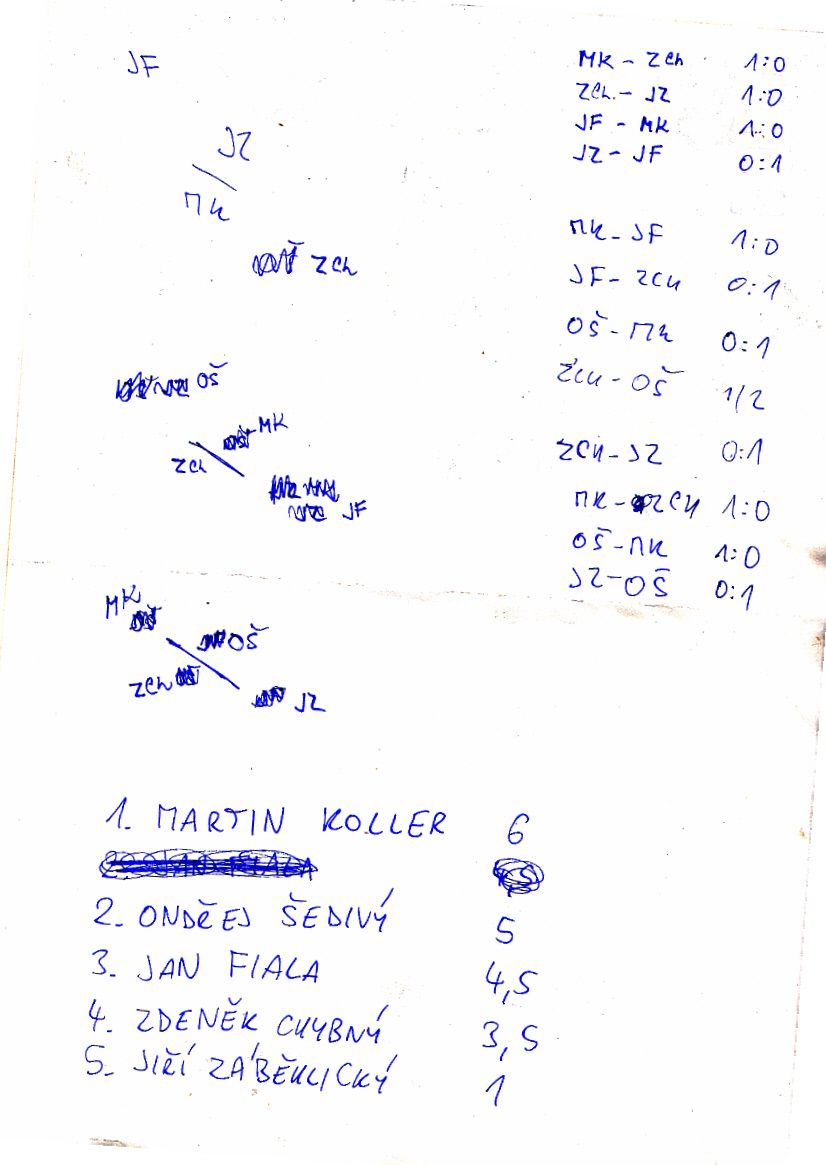 JF
JZ
MK
ZCh
OŠ
MK
ZCh
JF
MK
OŠ
ZCh
JZ
MK - ZCh 1:0
ZCh. - JZ 1:0
JF - MK 1:0
JZ - JF 0:1
MK - JF 1:0
JF - ZCH 0:1
OŠ - MK 0:1
ZCH - OŠ 1/2
ZCH - JZ 0:1
MK - ZCH 1:0
OŠ - MK 1:0
JZ - OŠ 0:1
1. MARTIN KOLLER 6
2. ONDŘEJ ŠEDIVÝ 5
3. JAN FIALA 4,5
4. ZDENĚK CHYBNÝ 3,5
5. JIŘÍ ZÁBĚHLICKÝ 1